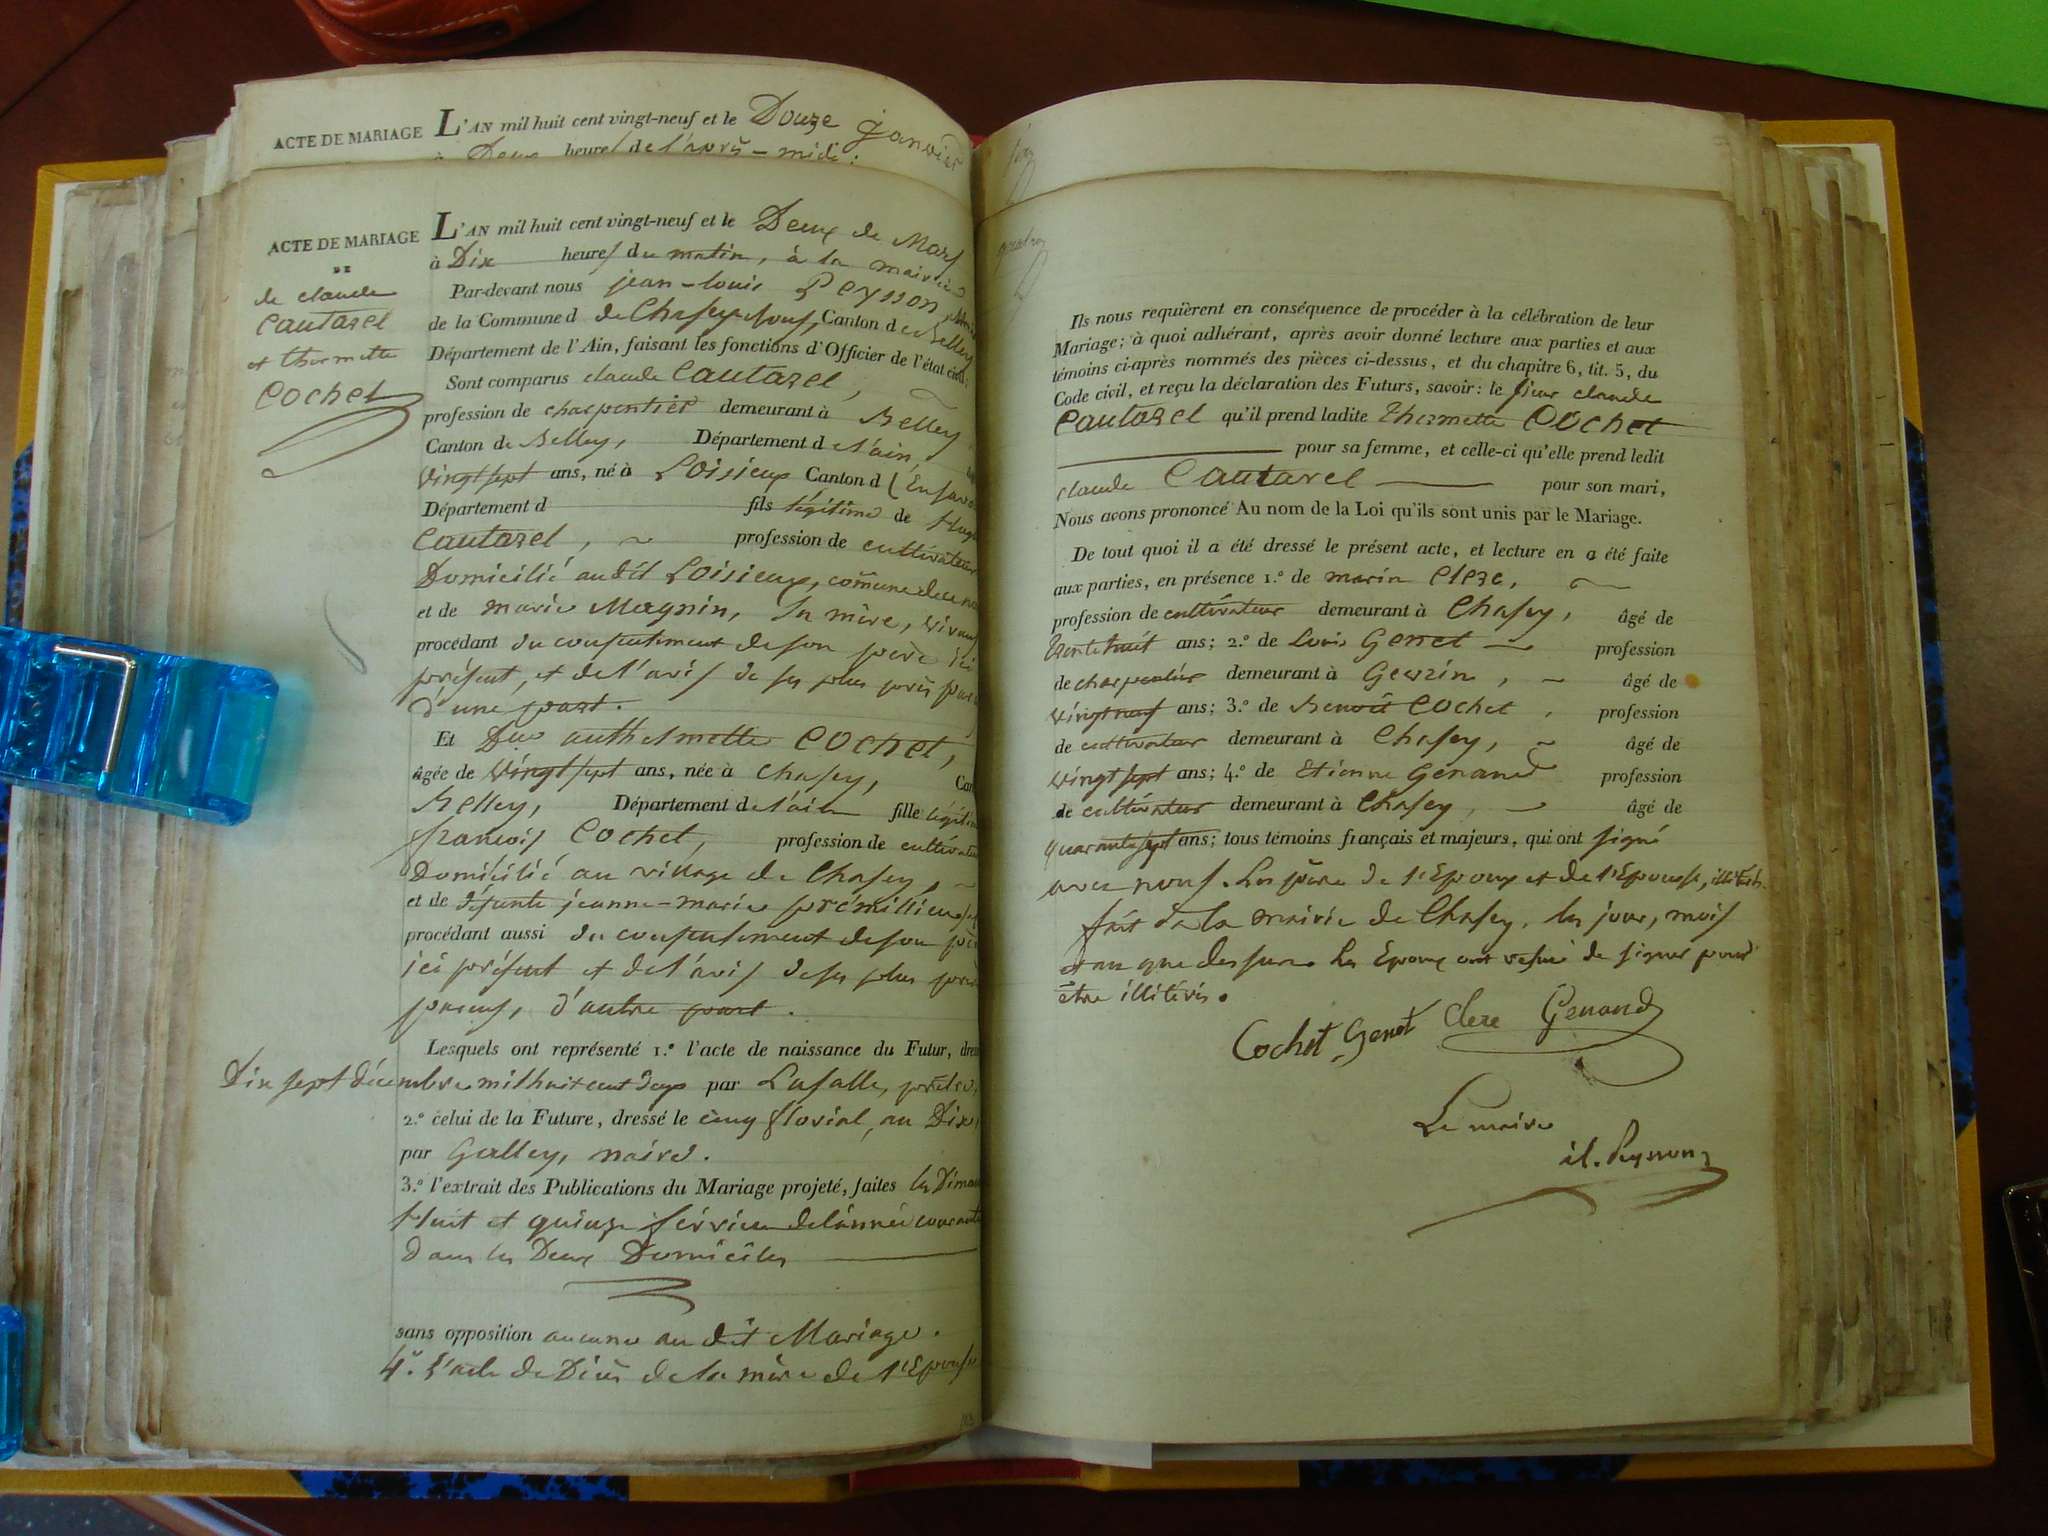 ACTE DE MARIAGE
L'AN mil huit cent vingt-neuf et le Douze janvier
à Deux heures de l'après-midi :
ACTE DE MARIAGE
DE
de claude
Cautarel
et thermette
Cochet
L'AN mil huit cent vingt-neuf et le Deux de Mars
à Dix heures du matin, à la mairie
Par-devant nous jean-louis Peysson
de la Commune d de Chasey-sous, Canton de Belley
Département de l'Ain, faisant les fonctions d'Officier de l'état civil.
Sont comparus claude Cautarel,
profession de charpentier demeurant à Belley
Canton de Belley, Département de l'ain,
vingt sept ans, né à Loisieux Canton d (En savoie
Département d fils légitime de hugue
Cautarel, profession de cultivateur
Domicilié audit Loisieux, comune
et de marie Magnin, sa mère, vivant
procédant du consentement de son père ici
présent, et de l'avis de ses plus près
d'une part.
Et Dlle anthelmette Cochet,
âgée de vingt sept ans, née à Chasey, Can
Belley, Département de l'ain fille légitime
françois Cochet, profession de cultivateur
Domicilié au village de Chasey,
et de défunte jeanne-marie prémillieu
procédant aussi du consentement de son père
ici présent et de l'avis de ses plus près
parens, d'autre part.
Lesquels ont représenté 1.º l'acte de naissance du Futur, dressé
Dix sept décembre mil huit cent deux par Lasalle, prêtre,
2.º celui de la Future, dressé le cinq floréal, an Dix,
par Galley, maire.
3.º l'extrait des Publications du Mariage projeté, faites les Diman
huit et quinze février de l'année courante
dans les Deux Domiciles
sans opposition aucune au dit Mariage.
4.º l'acte de Décès de la mère de l'Epouse
Ils nous requièrent en conséquence de procéder à la célébration de leur
Mariage; à quoi adhérant, après avoir donné lecture aux parties et aux
témoins ci-après nommés des pièces ci-dessus, et du chapitre 6, tit. 5, du
Code civil, et reçu la déclaration des Futurs, savoir: le sieur claude
Cautarel qu'il prend ladite thermette Cochet
pour sa femme, et celle-ci qu'elle prend ledit
claude Cautarel pour son mari,
Nous avons prononcé Au nom de la Loi qu'ils sont unis par le Mariage.
De tout quoi il a été dressé le présent acte, et lecture en a été faite
aux parties, en présence 1.º de marin Clerc,
profession de cultivateur demeurant à Chasey, âgé de
trente huit ans; 2.º de Louis Genet profession
de charpentier demeurant à Gevrin, âgé de
vingt neuf ans; 3.º de Benoît Cochet, profession
de cultivateur demeurant à Chasey, âgé de
vingt sept ans; 4.º de Etienne Genand profession
de cultivateur demeurant à Chasey, âgé de
quarante sept ans; tous témoins français et majeurs, qui ont signé
avec nous. Les père de l'Epoux et de l'Epouse, illitérés.
fait à la mairie de Chasey, les jour, mois
et an que dessus. Les Epoux ont refusé de signer pour
être illitérés.
Cochet Genet Clerc Genand
Le maire
jl. Peysson